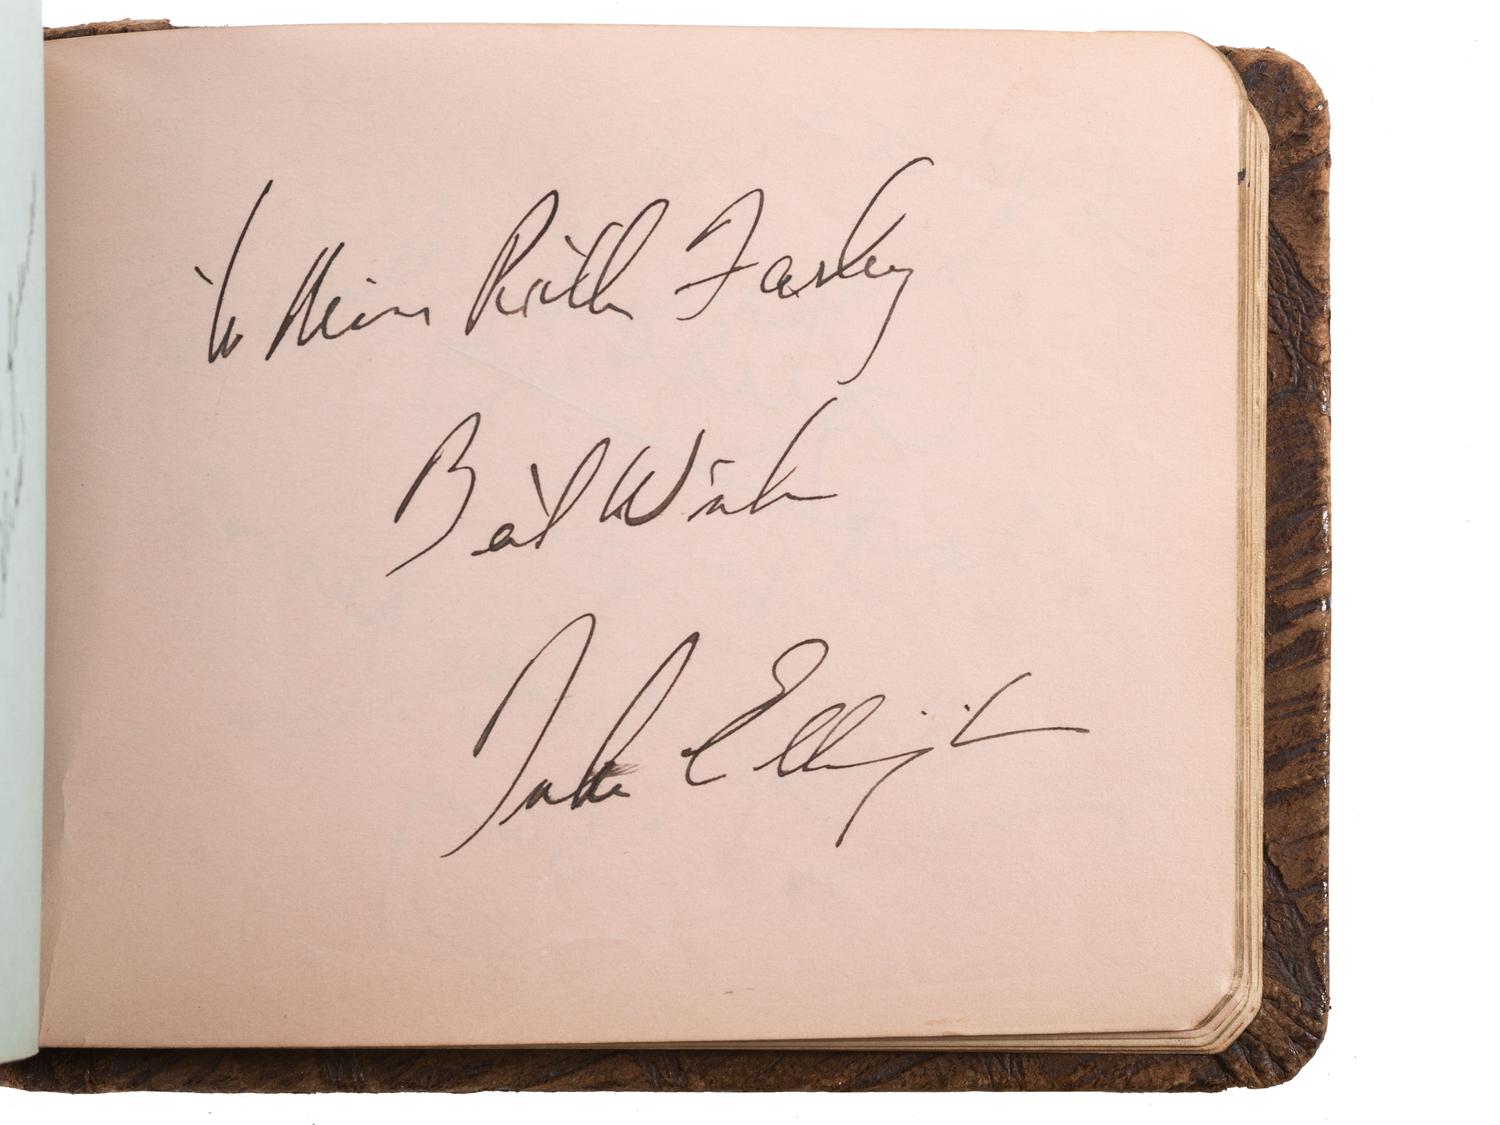 To Miss Ruth Farley
Best Wishes
Duke Ellington